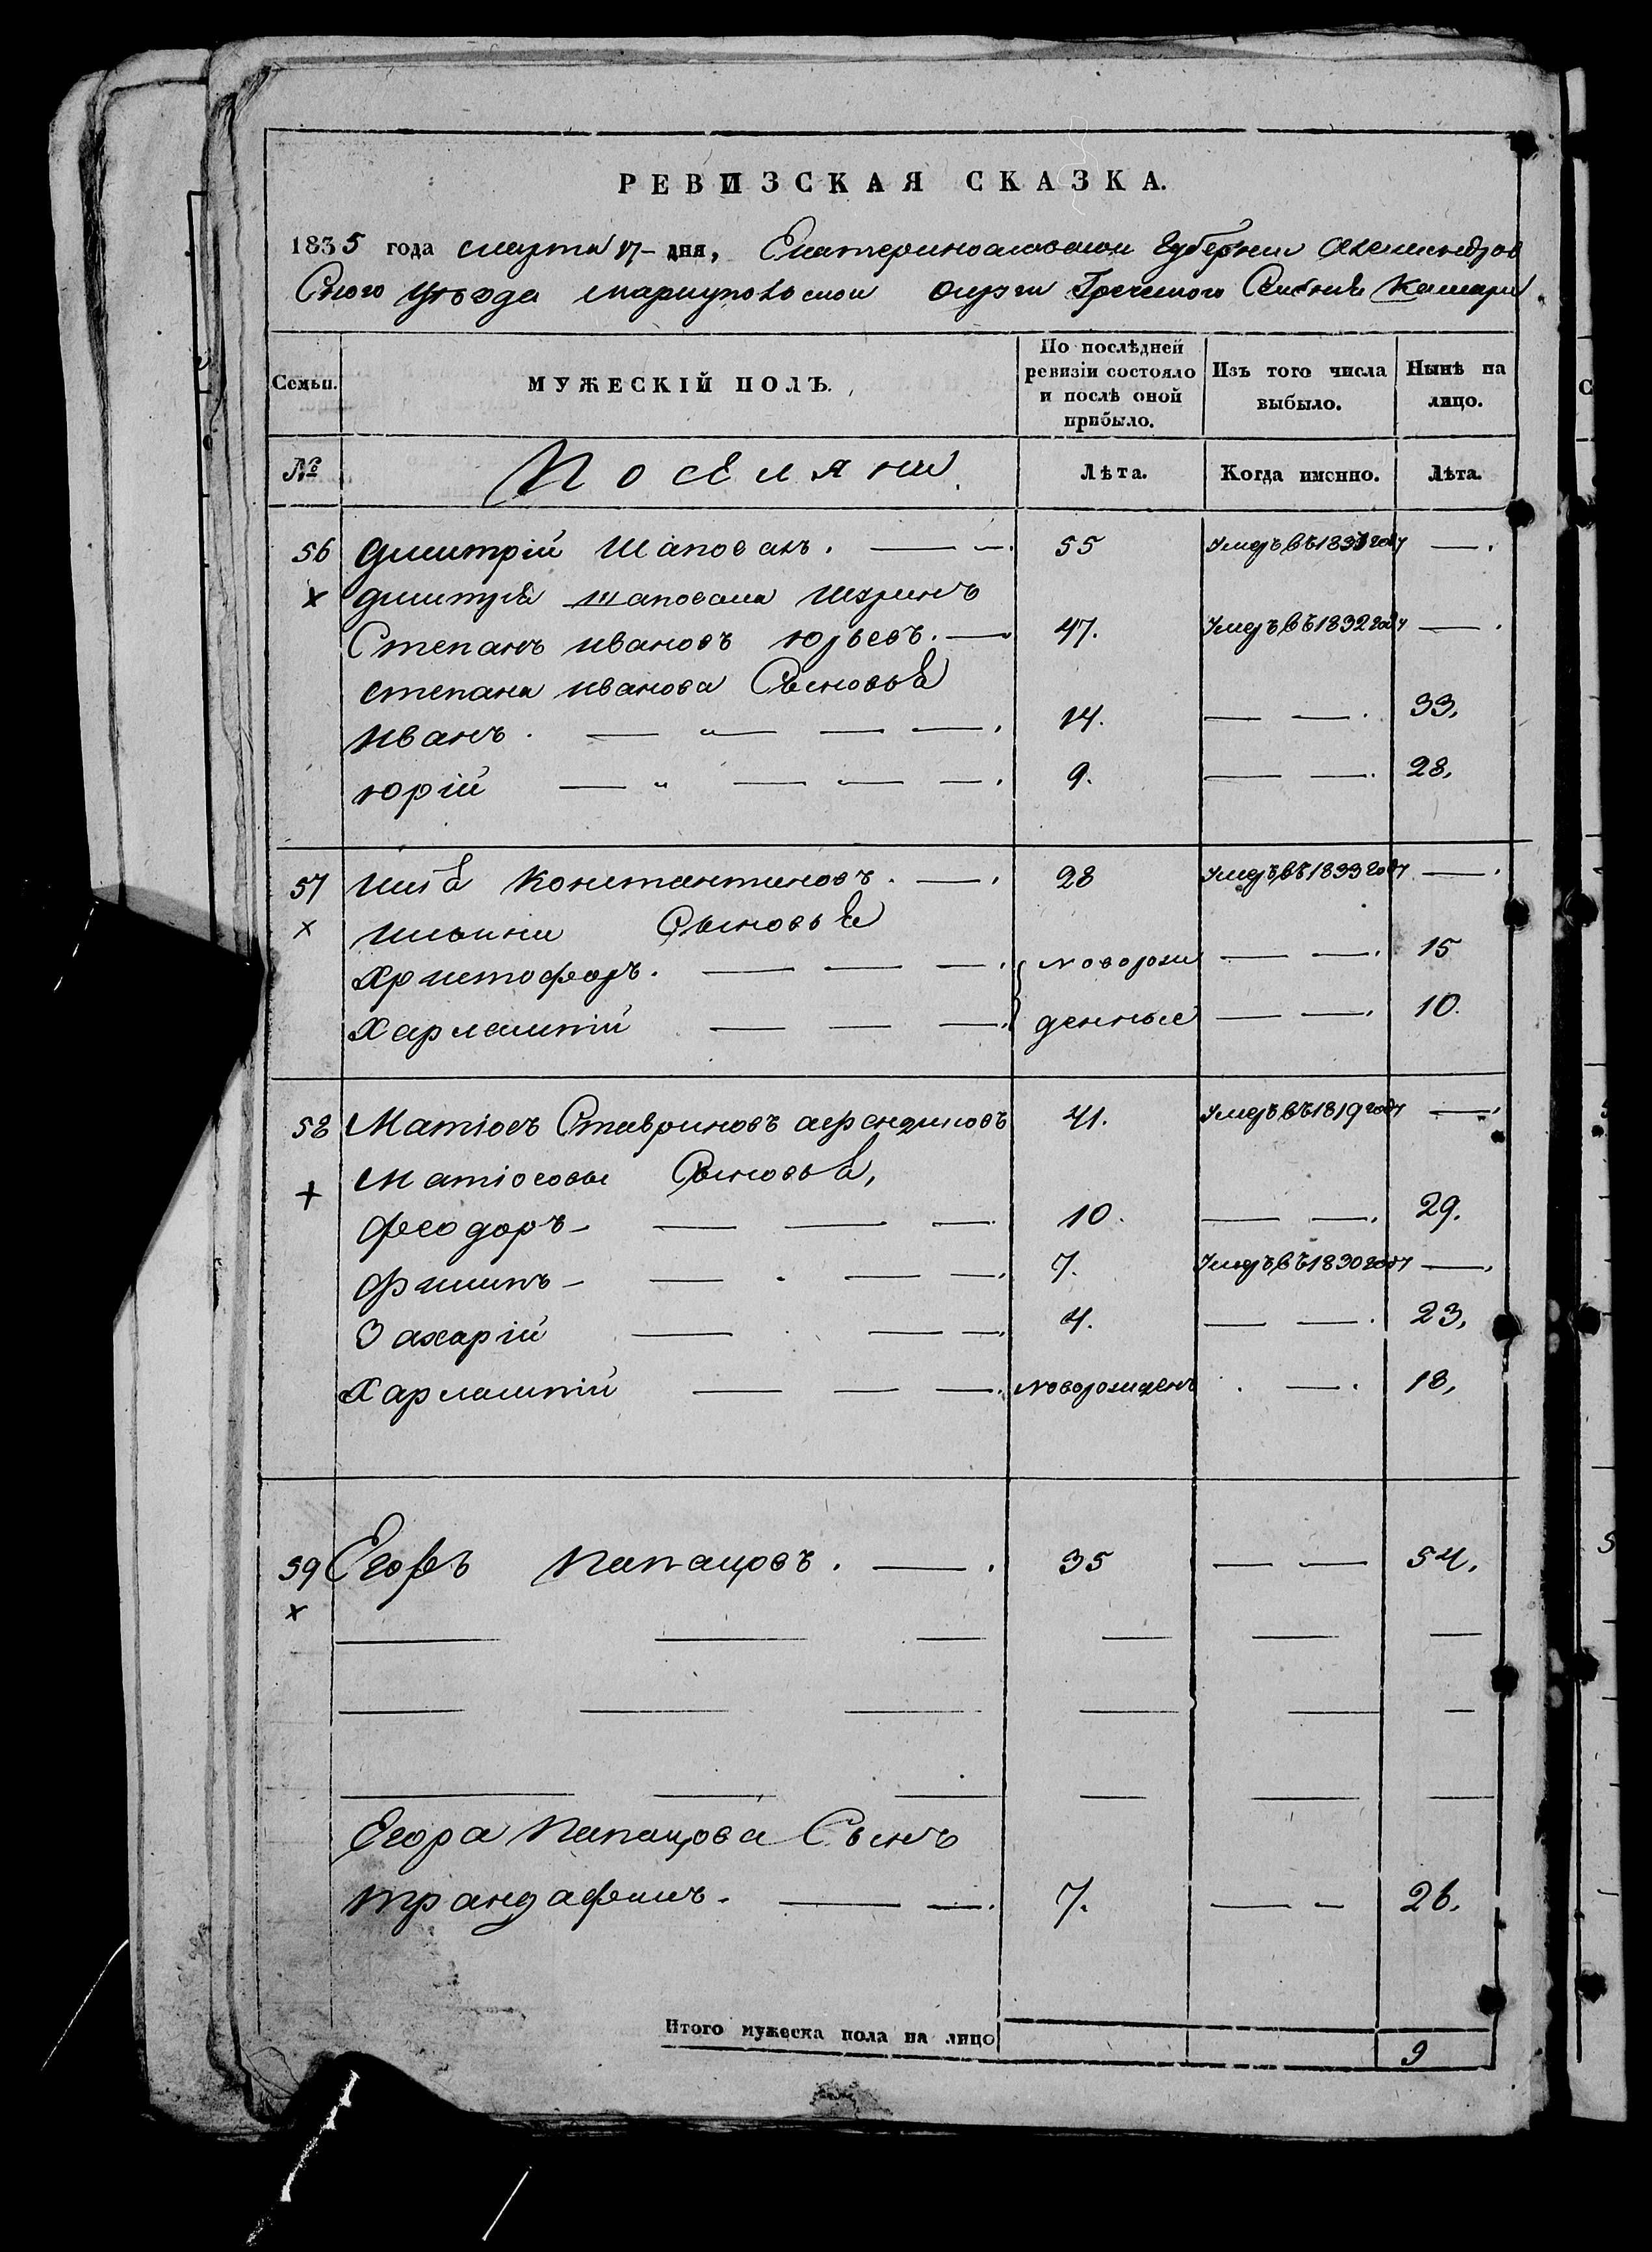 РЕВИЗСКАЯ СКАЗКА.
1835 года марта 17 – дня, Екатеринославской Губернии Александров
Скаго уезда мариупольской округи Греческого Селения
Семьи. МУЖЕСКІЙ ПОЛЪ. По послѣдней ревизіи состояло и послѣ оной прибыло. Изъ того числа выбыло. Нынѣ на лицо.
№ Поселяни Лѣта. Когда именно. Лѣта.
56 Дмитрій Шаповалъ. 55 Умеръ въ 1833 году
Дмитрія Шаповала Шуринъ
Степанъ ивановъ юрьевъ. 47. Умеръ въ 1832 году
Степана иванова Сыновья
Иванъ. 14. 33.
юрій 9. 28.
57 Илія Константиновъ. 28 Умеръ въ 1833 году
х Ильины Сыновья
Христофоръ. новорож 15
Харлампій денные 10.
58 Матіосъ Ставриновъ афендиковъ 41. Умеръ въ 1819 году
+ Матіосовы Сыновья,
Феодоръ 10. 29.
Филипъ 7. Умеръ въ 1830 году
Захарій 4. 23.
Харлампій новорожденъ 18.
59 Егоръ Папацовъ. 35 54.
х
Егора Папацова Сынъ
Трандафилъ. 7. 26.
Итого мужеска пола на лицо 9